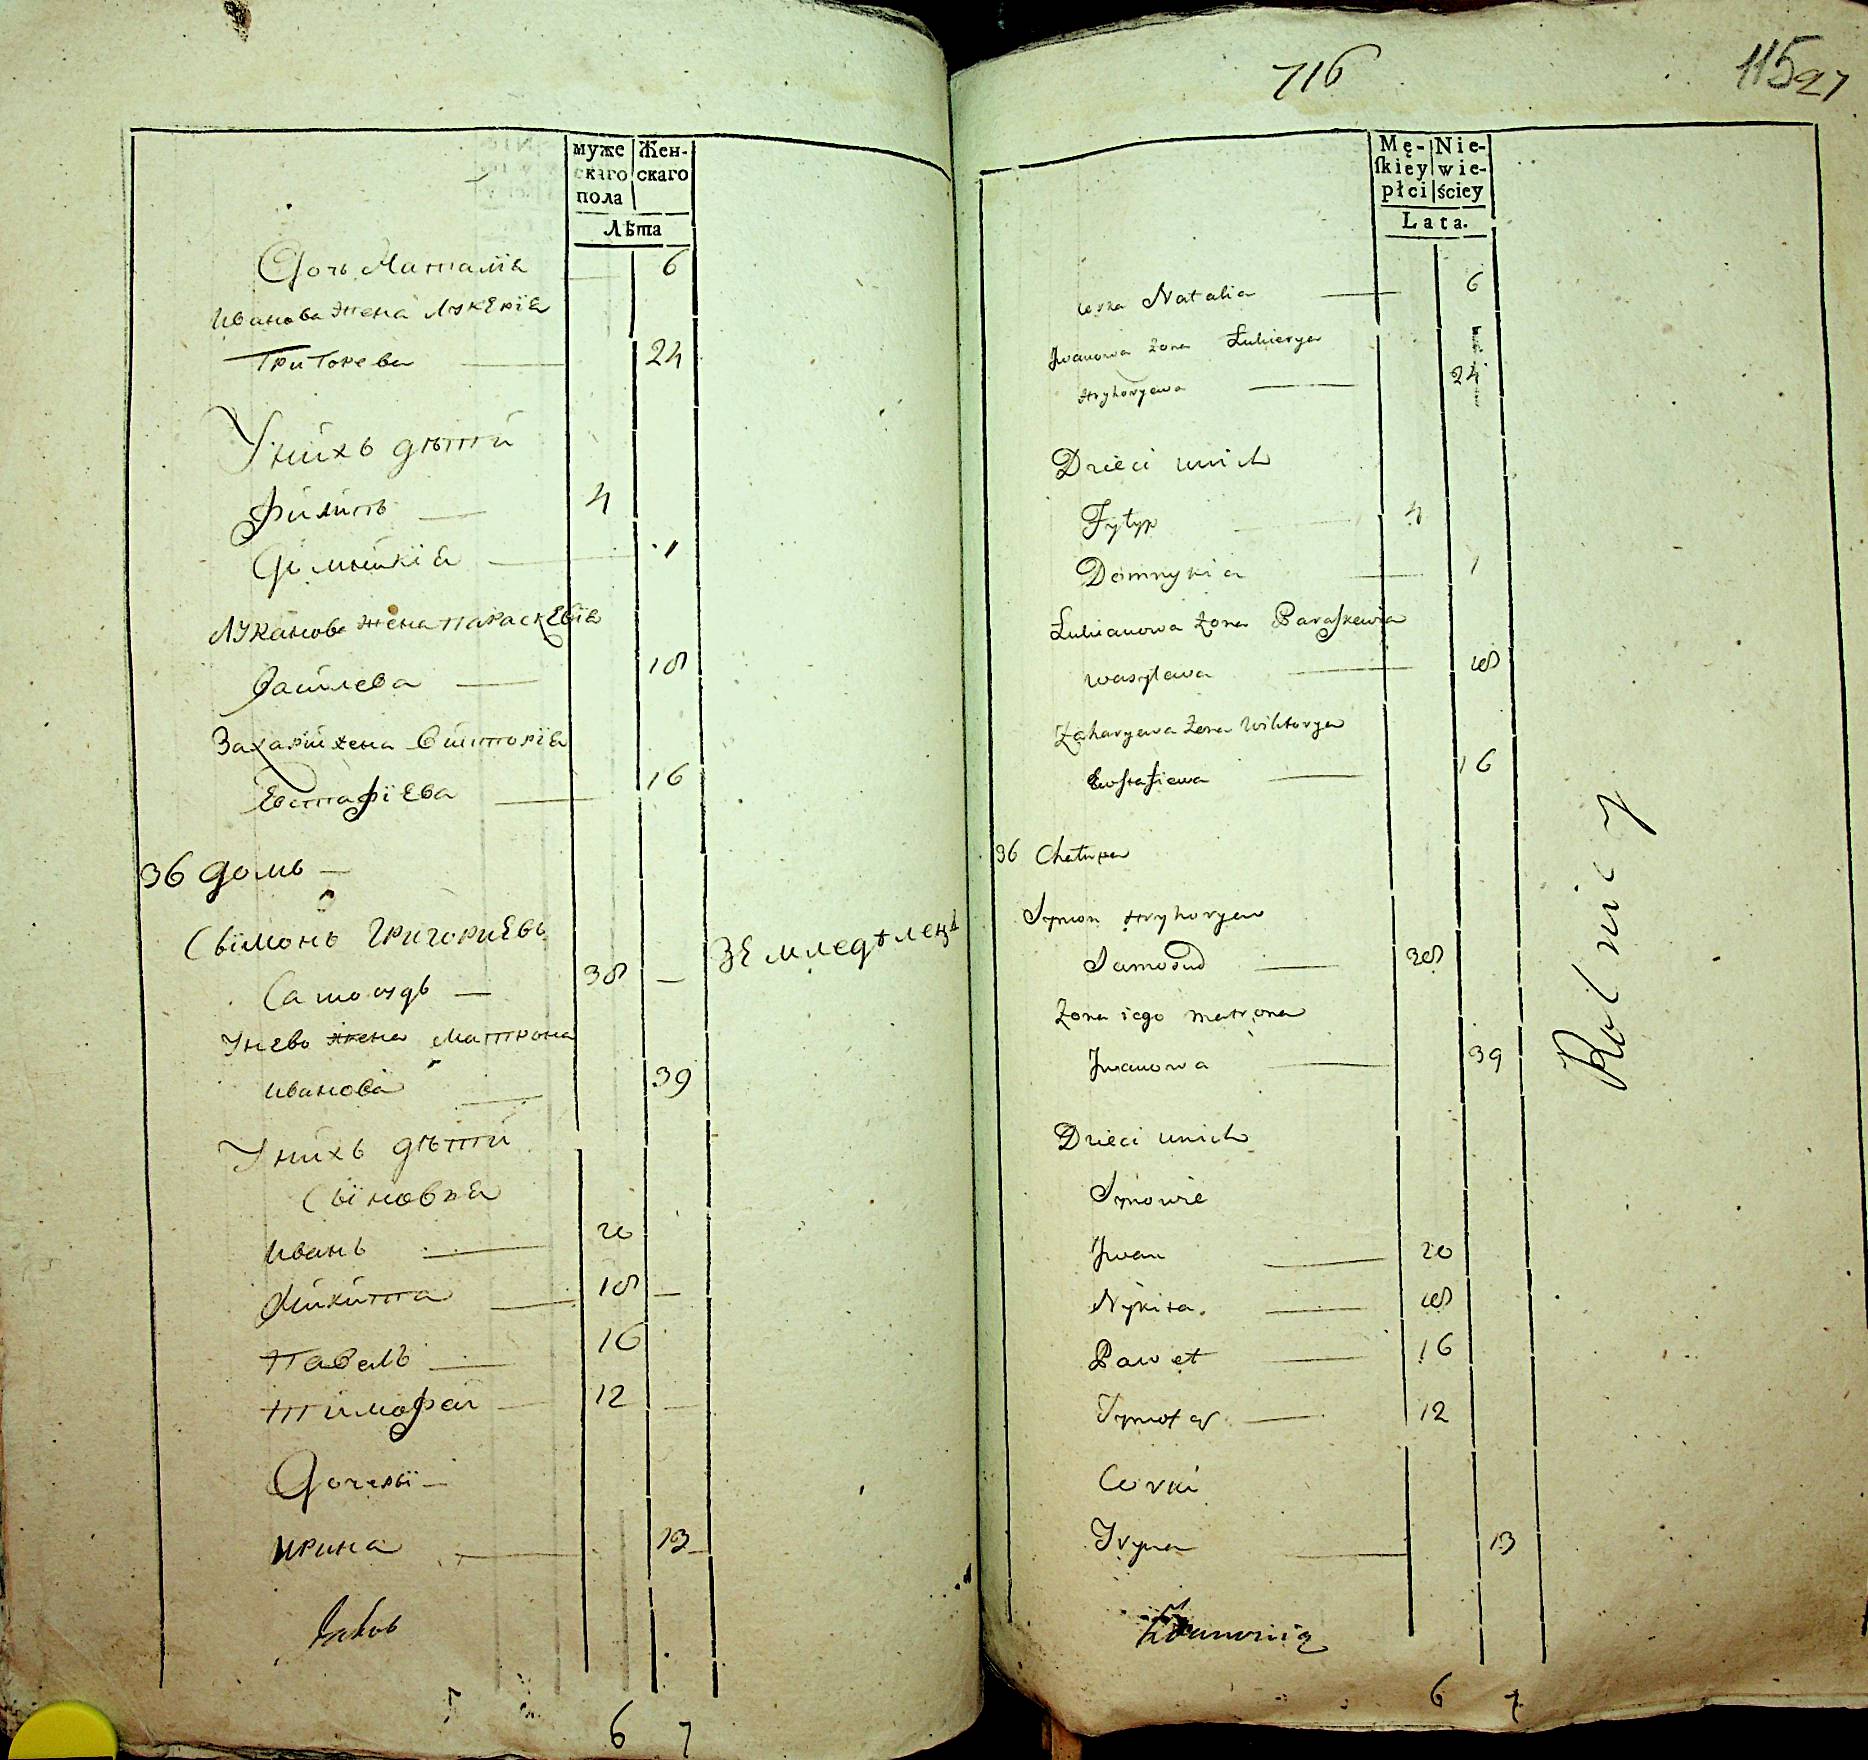 муже
скаго
пола
Жен-
скаго
Лѣта
Дочь Наталія 6
Иванова жена Лукерія
Григорева 24
У нихъ дѣти
Филипъ 4
Домникія 1
Луканова жена Параскевія
Васілева 18
Захарій жена Викторія
Евстафіева 16
36 домъ
Сымонъ Григориевъ
Самосудъ 38 Земледѣлецъ
У нево жена Матрона
Иванова 39
У нихъ дѣти
Сыновья
Иванъ 20
Никита 18
Павелъ 16
Тимофей 12
Дочеры
Ирина 13
Jakob
6 7
716
115 27
Mę-
ſkiey
płci
Nie-
wie-
ściey
Lata.
corka Natalia 6
Jwanowa żona Łukierya
Hryhoryewa 24
Dzieci unich
Fylyp 4
Domnykia 1
Łukianowa żona Paraſkewia
wasylewa 18
Zaharyewa żona Wiktorya
Ewſtafiewa 16
36 Chałupa
Symon Hryhoryew
Samosud 38 Rolnicy
Zona iego matrona
Jwanowa 39
Dzieci unich
Synowie
Jwan 20
Nykita 18
Paweł 16
Tymofey 12
Corki
Iryna 13
6 7